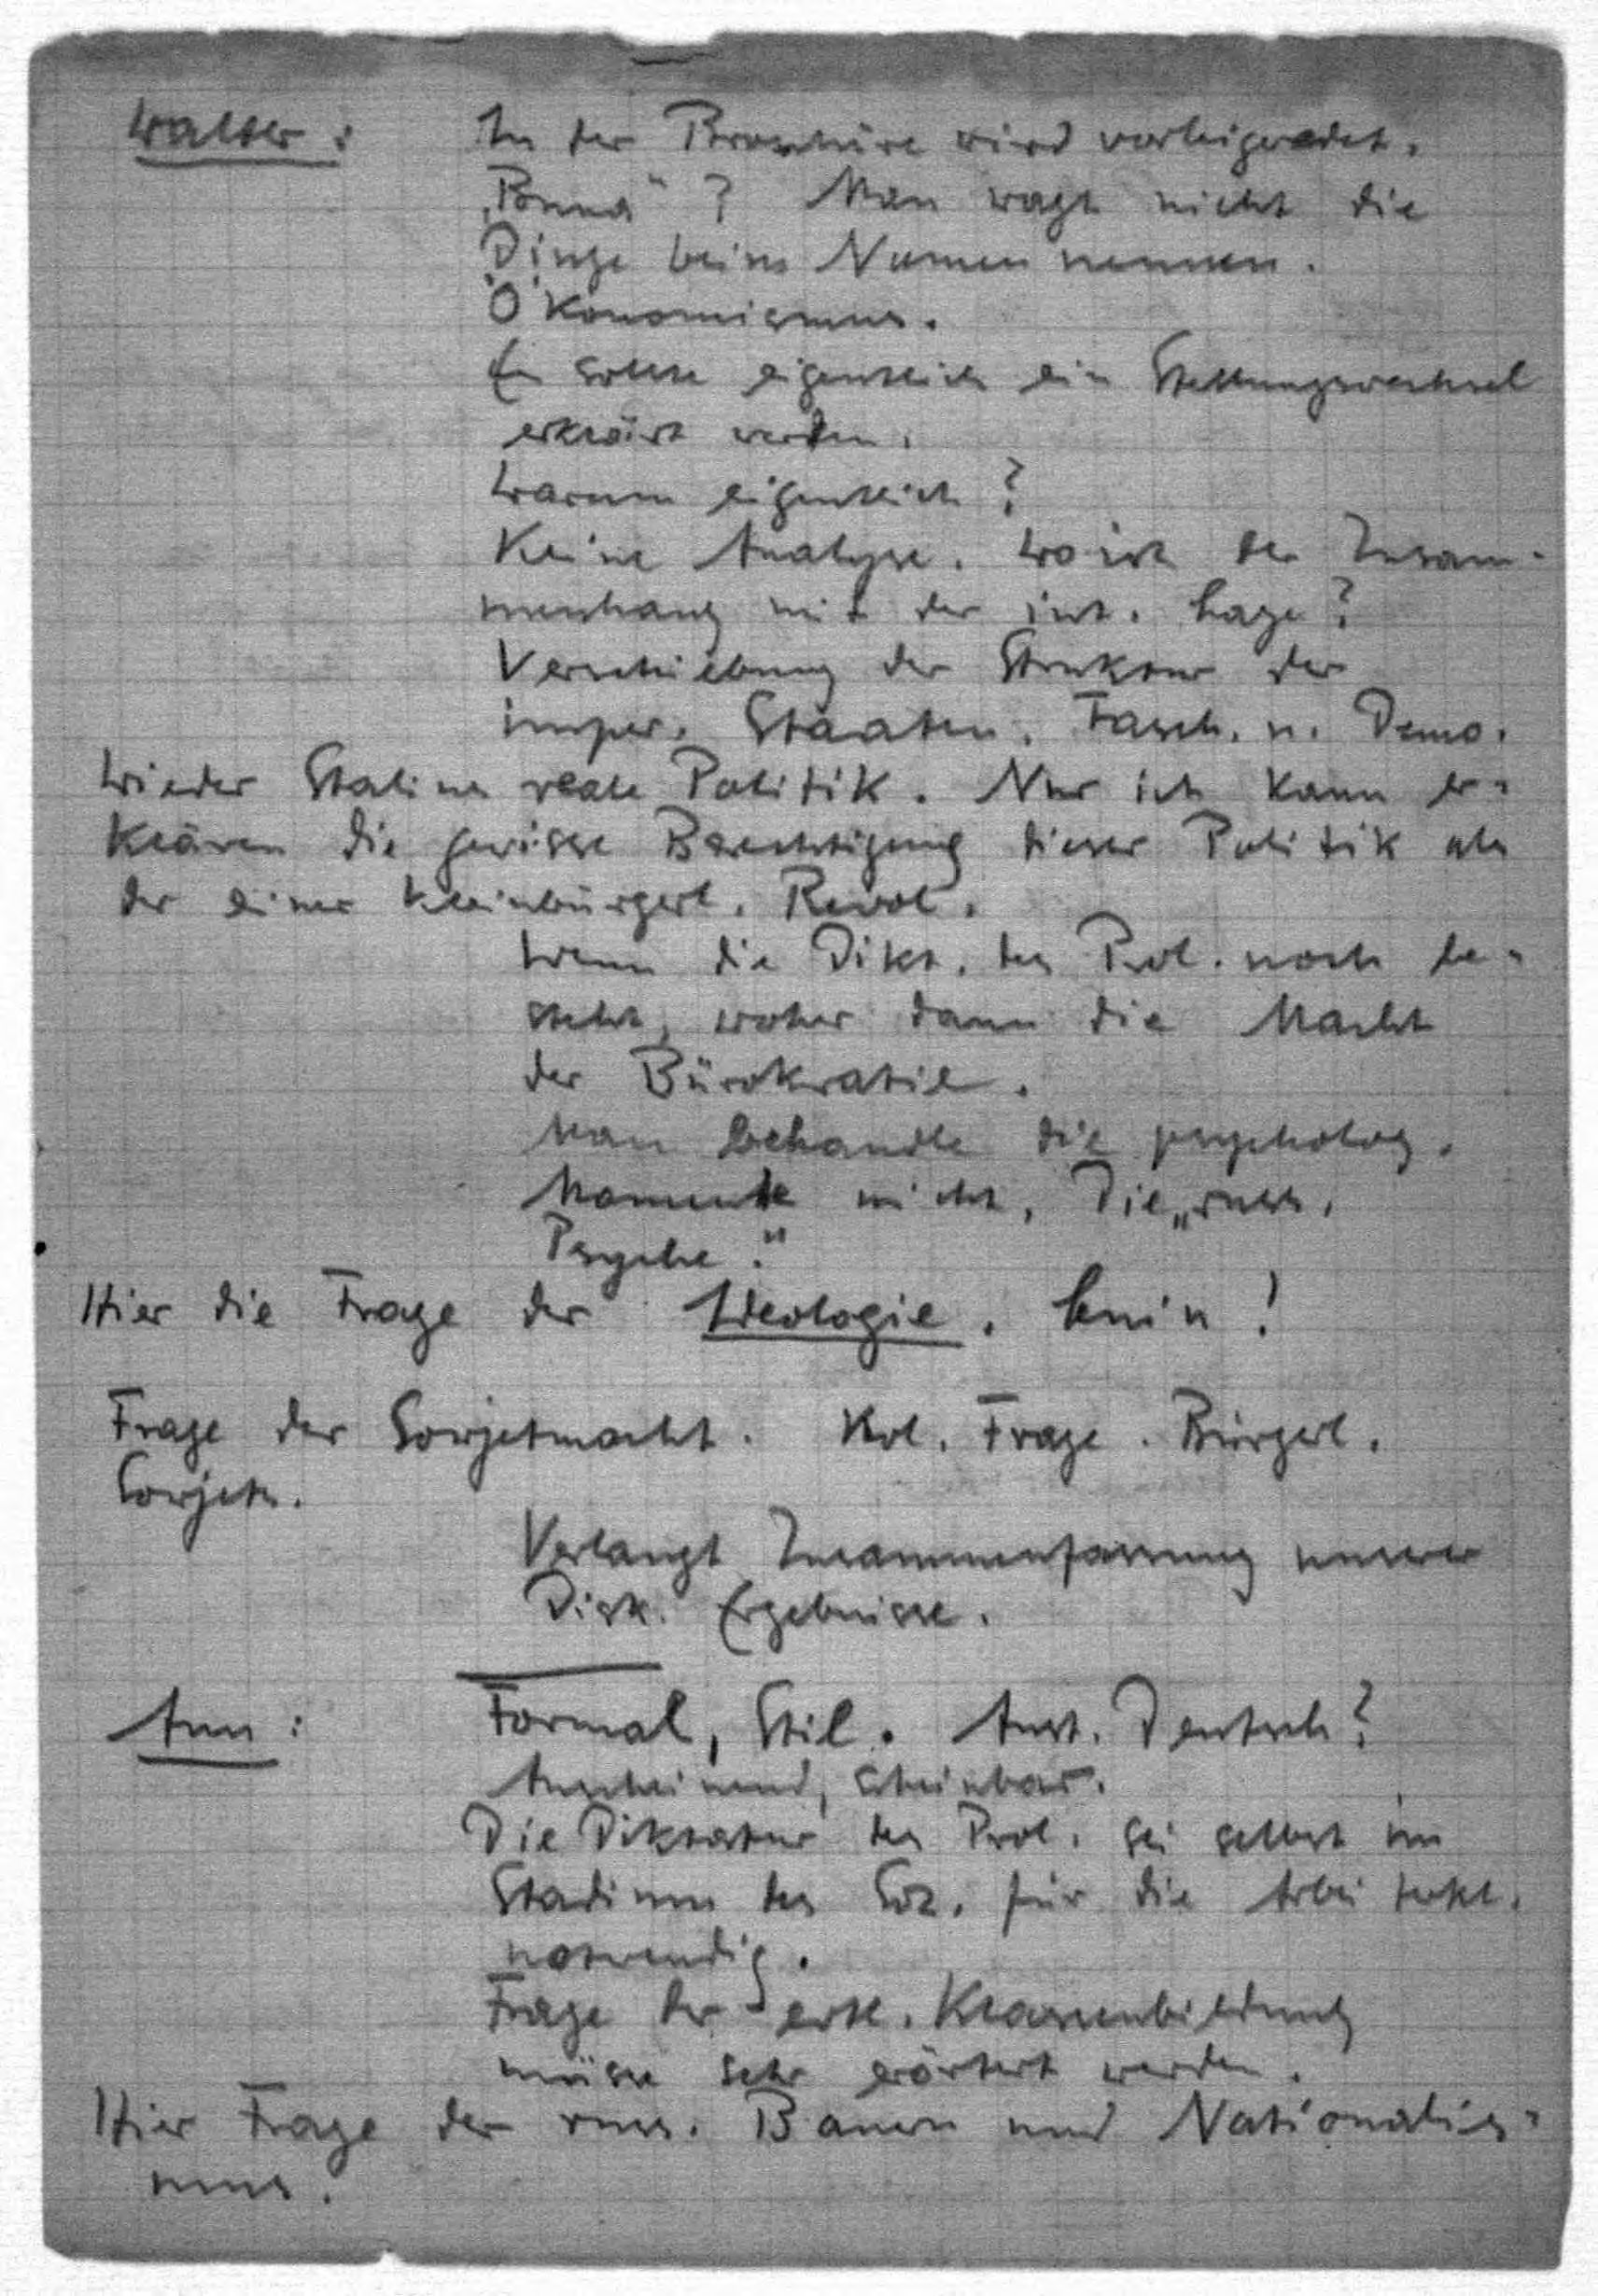 Walter: In der Broschüre wird vorbeigeredet.
? Man wagt nicht die
Dinge beim Namen nennen.
Ökonomismus.
Es sollte eigentlich ein Stellungswechsel
erklärt werden.
Warum eigentlich?
Keine Analyse. Wo ist der Zusam-
menhang mit der int. Lage?
Verschiebung der Struktur der
imper. Staaten. Fasch. u. Demo.
Wieder Stalins reale Politik. Nur ich kann er-
klären die gewisse Berechtigung dieser Politik als
der einer kleinbürgerl. Revol.
Wenn die Dikt. des Prol. noch be-
steht, woher dann die Macht
der Bürokratie.
Man behandle die psycholog.
Momente nicht. Die „russ.
Psyche."
Hier die Frage der Ideologie. Lenin!
Frage der Sowjetmacht. Kol. Frage. Bürgerl.
Sowjets.
Verlangt Zusammenfassung unserer
Disk. Ergebnisse.
Ann: Formal, Stil. Aust. Deutsch?
Anscheinend, scheinbar.
Die Diktatur des Prol. sei selbst im
Stadium des Soz. für die Arbeiterkl.
notwendig.
Frage der Klassenbildung
müsse sehr erörtert werden.
Hier Frage der russ. Bauern und Nationalis-
mus.